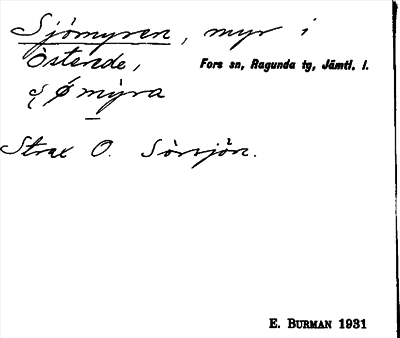 Sjömyren, myr i
Östende, Fors sn, Ragunda tg, Jämtl. l.
Strax O. Sörsjön.
E. BURMAN 1931